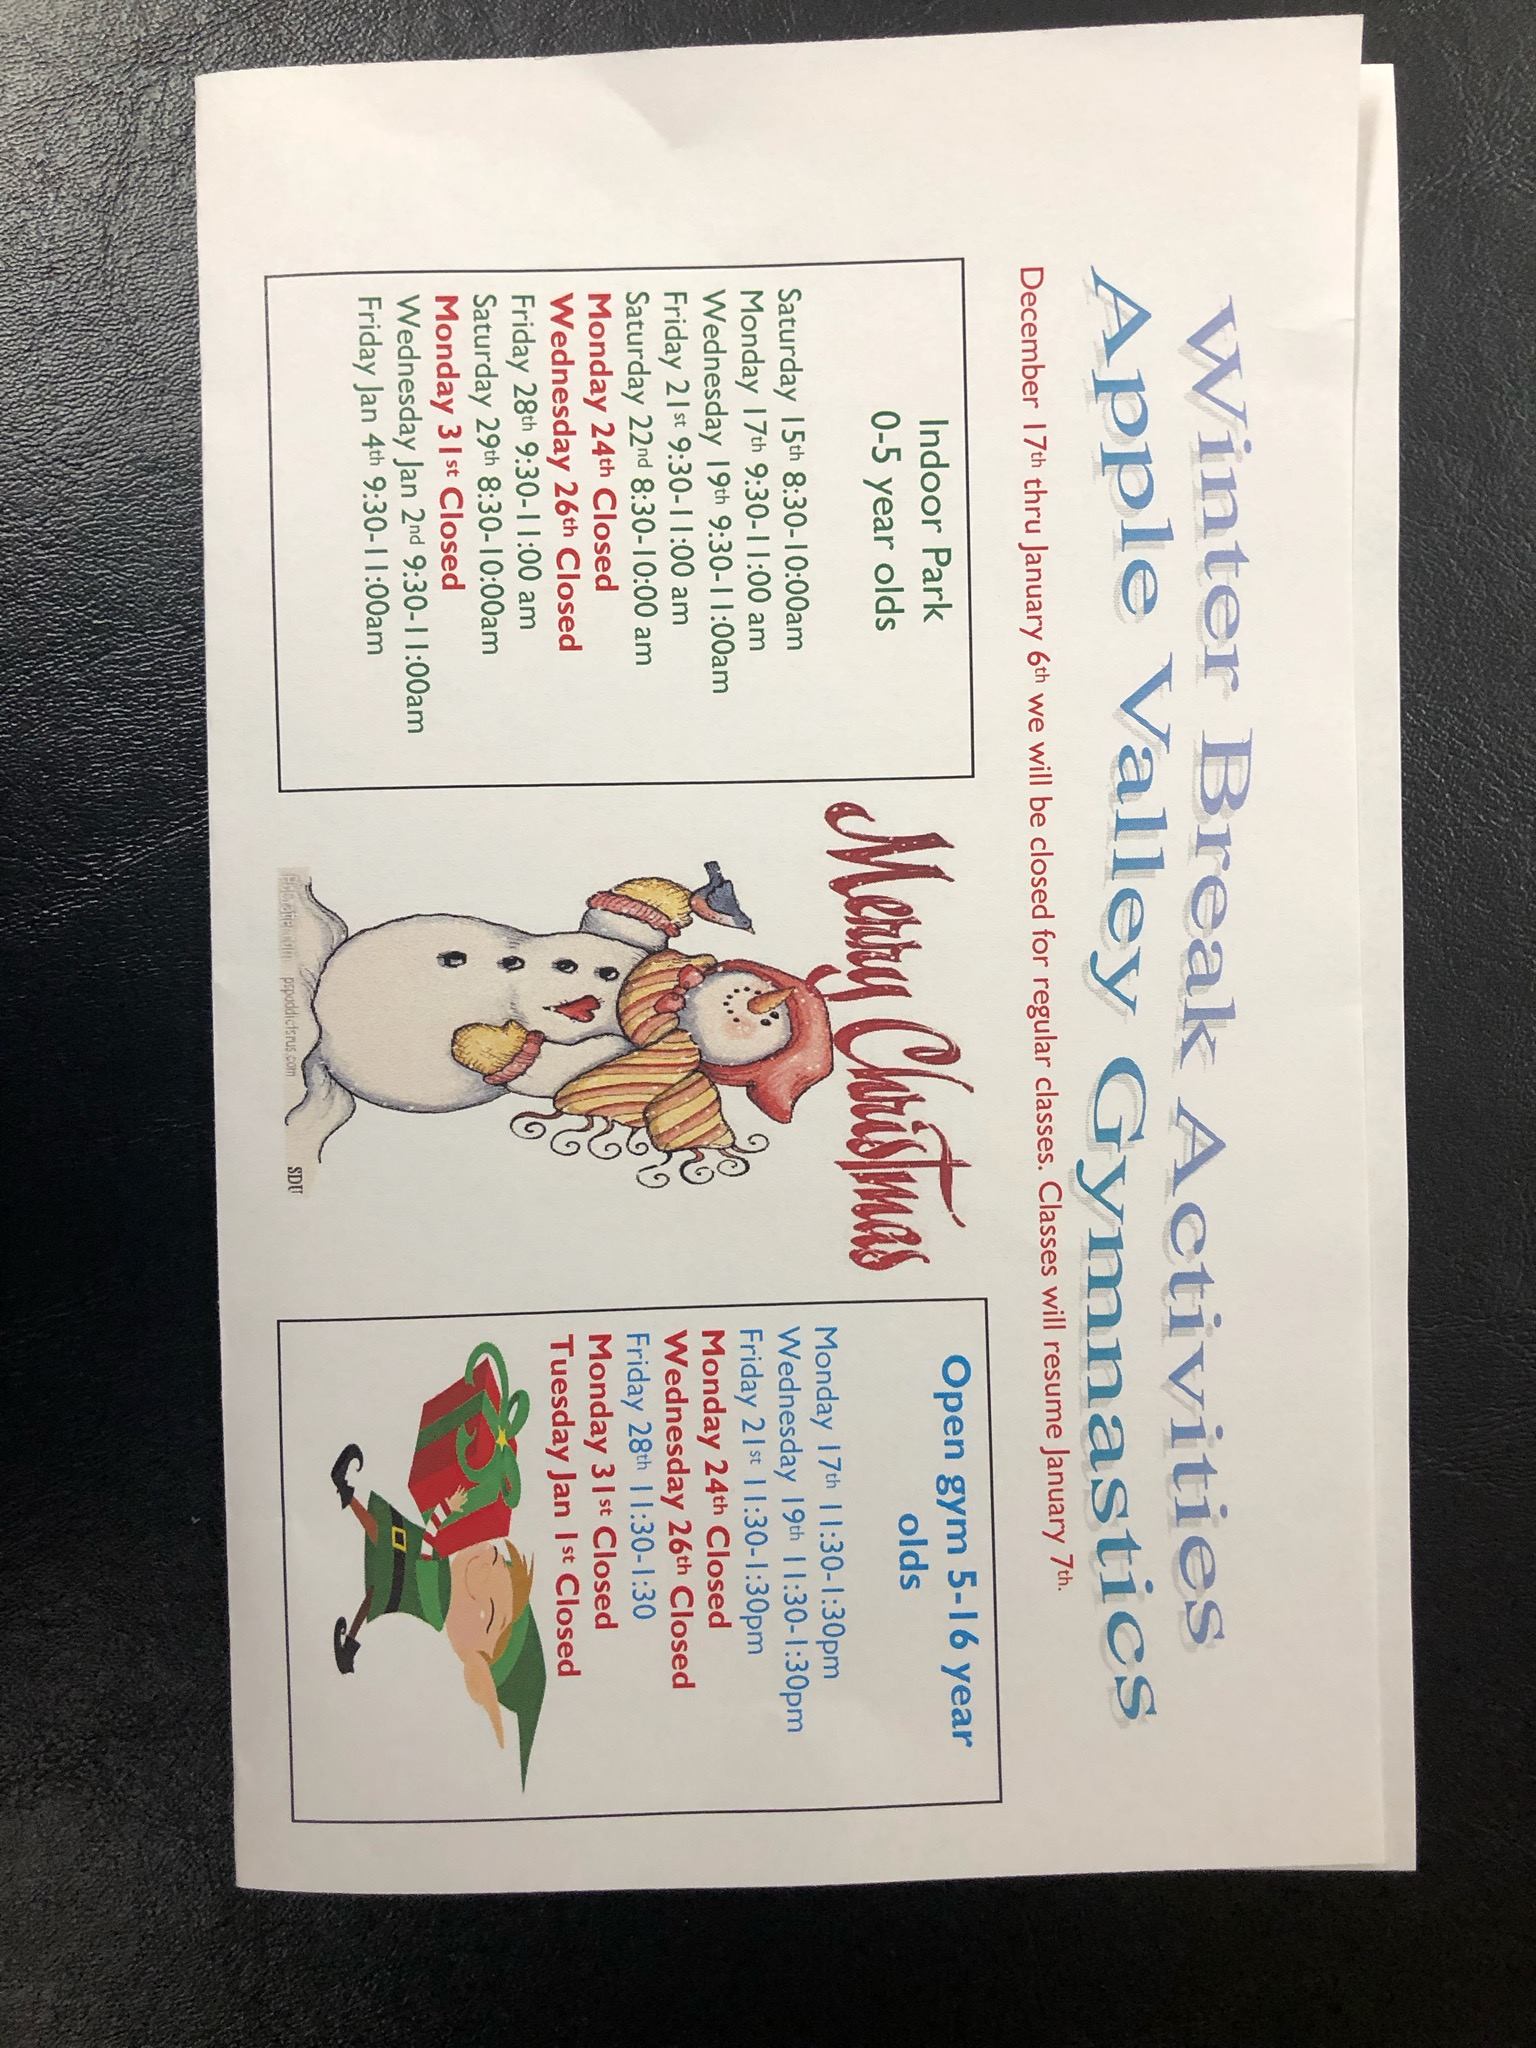 Winter Break Activities
Apple Valley Gymnastics
December 17th thru January 6th we will be closed for regular classes. Classes will resume January 7th.
Indoor Park
0-5 year olds
Saturday 15th 8:30-10:00am
Monday 17th 9:30-11:00 am
Wednesday 19th 9:30-11:00am
Friday 21st 9:30-11:00 am
Saturday 22nd 8:30-10:00 am
Monday 24th Closed
Wednesday 26th Closed
Friday 28th 9:30-11:00 am
Saturday 29th 8:30-10:00am
Monday 31st Closed
Wednesday Jan 2nd 9:30-11:00am
Friday Jan 4th 9:30-11:00am
Merry Christmas
SDU
Open gym 5-16 year
olds
Monday 17th 11:30-1:30pm
Wednesday 19th 11:30-1:30pm
Friday 21st 11:30-1:30pm
Monday 24th Closed
Wednesday 26th Closed
Friday 28th 11:30-1:30
Monday 31st Closed
Tuesday Jan 1st Closed